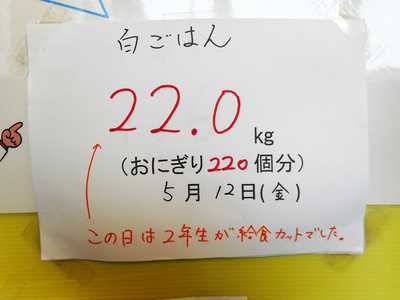 白ごはん
22.0
kg
(おにぎり220個分)
5月12日(金)
この日は2年生が給食カットでした。